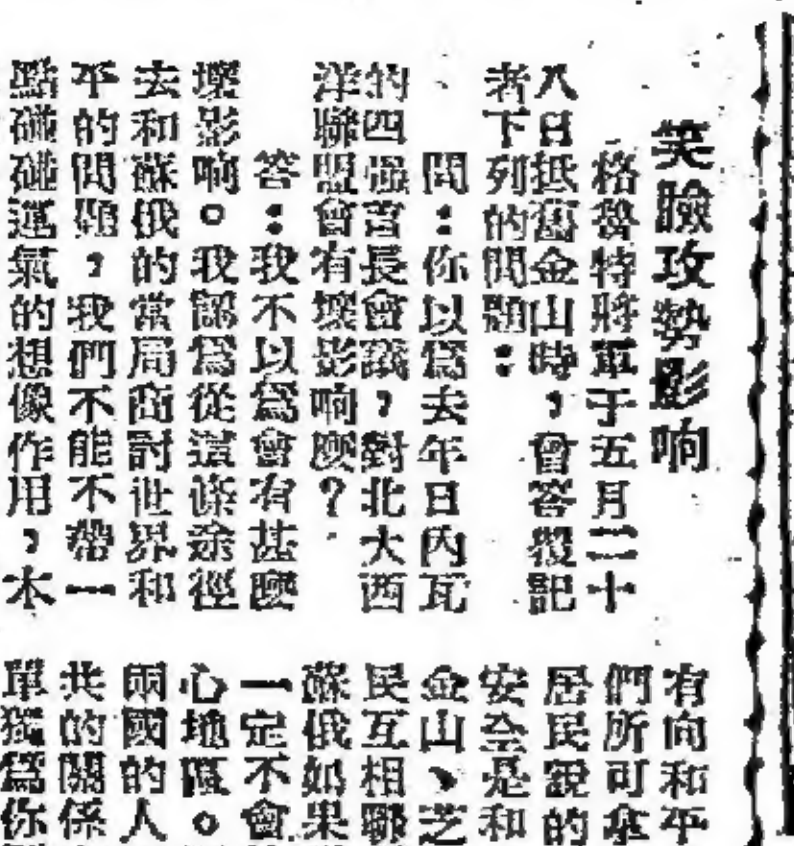 笑臉攻勢影响
格魯特將軍于五月二十
八日抵舊金山時，曾答覆記
者下列的問題：
問：你以爲去年日內瓦
的四强首長會議，對北大西
洋聯盟會有壞影响麽？
答：我不以爲會有甚麽
壞影响。我認爲從這條途徑
去和蘇俄的當局商討世界和
平的問題，我們不能不帶一
點碰碰運氣的想像作用，本
有向和平
們所可拿
居民說的
安全是和
金山、芝
民互相聯
蘇俄如果
一定不會
心地區。
兩國的人
共的關係
單獨爲你